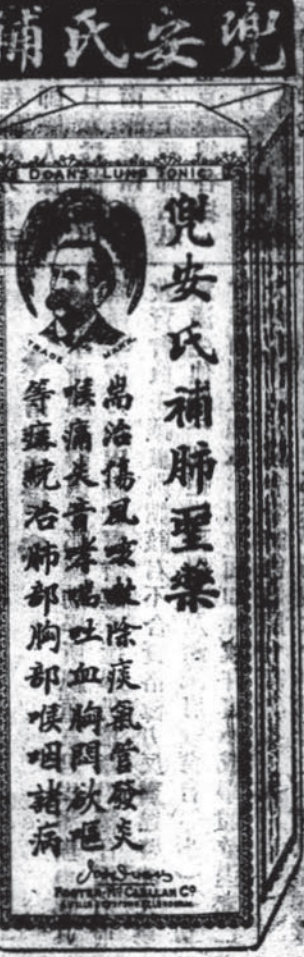 兜安氏補
DOAN'S LUNG TONIC
TRADE MARK
兜安氏補肺聖藥
耑治傷風咳嗽除痰氣管發炎
喉痛失音哮喘吐血胸悶欲嘔
等症統治肺部胸部喉咽諸病
FOSTER-McCLELLAN Co